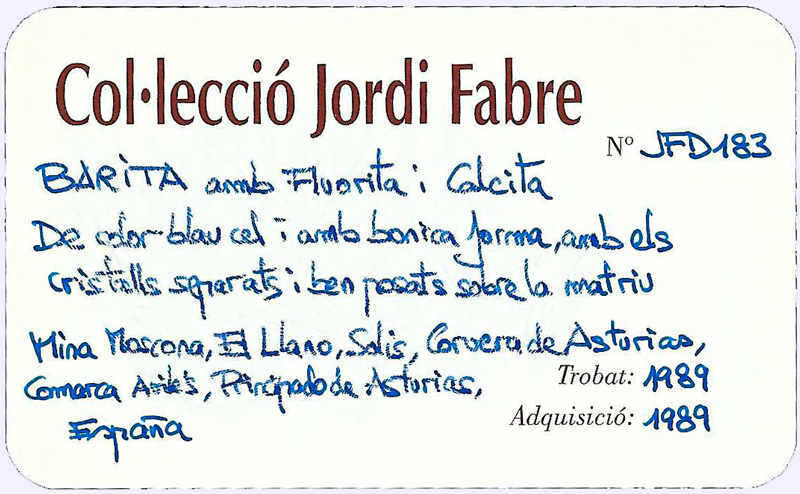 Col·lecció Jordi Fabre
Nº JFD183
BARITA amb Fluorita i Calcita
De color blau cel i amb bonica forma, amb els
cristalls separats i ben posats sobre la matriu
Mina Moscona, El Llano, Solís, Corvera de Asturias,
Comarca Avilés, Principado de Asturias,
España
Trobat: 1989
Adquisició: 1989